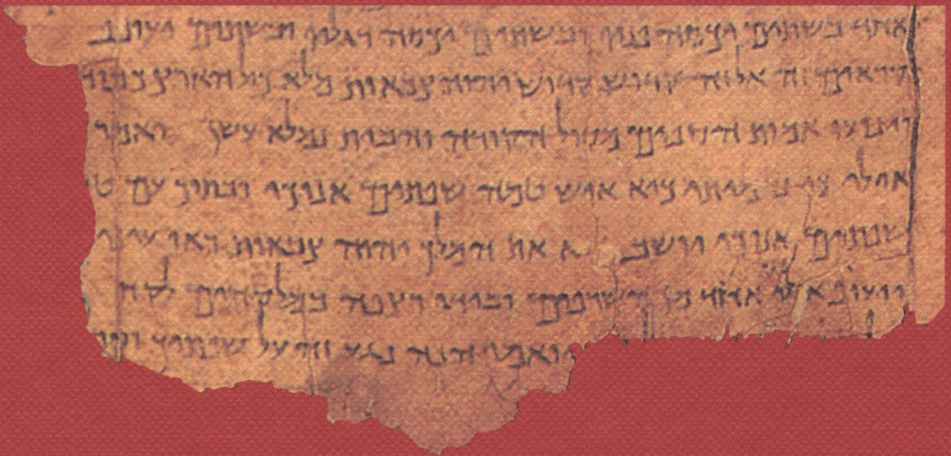 אחד בשתים יכסה פניו ובשתים יכסה רגליו ובשתים יעופ
זה אל זה קדוש קדוש יהוה צבאות מלא כול הארץ כבודו
וינועו אמות הספים מקול הקורה והבית נמלא עשן ואמר
אילי כי נדמיתי כיא איש טמה שפתים אנוכי ובתוך עם ט
שפתים אנוכי יושב א את המלך יהוה צבאות ראו עיני
ויעוף אלי אחד מן השרפים ובידו רצפה במלקחים לקח
ויאמר הנה נגע זה על שפתיך וסר